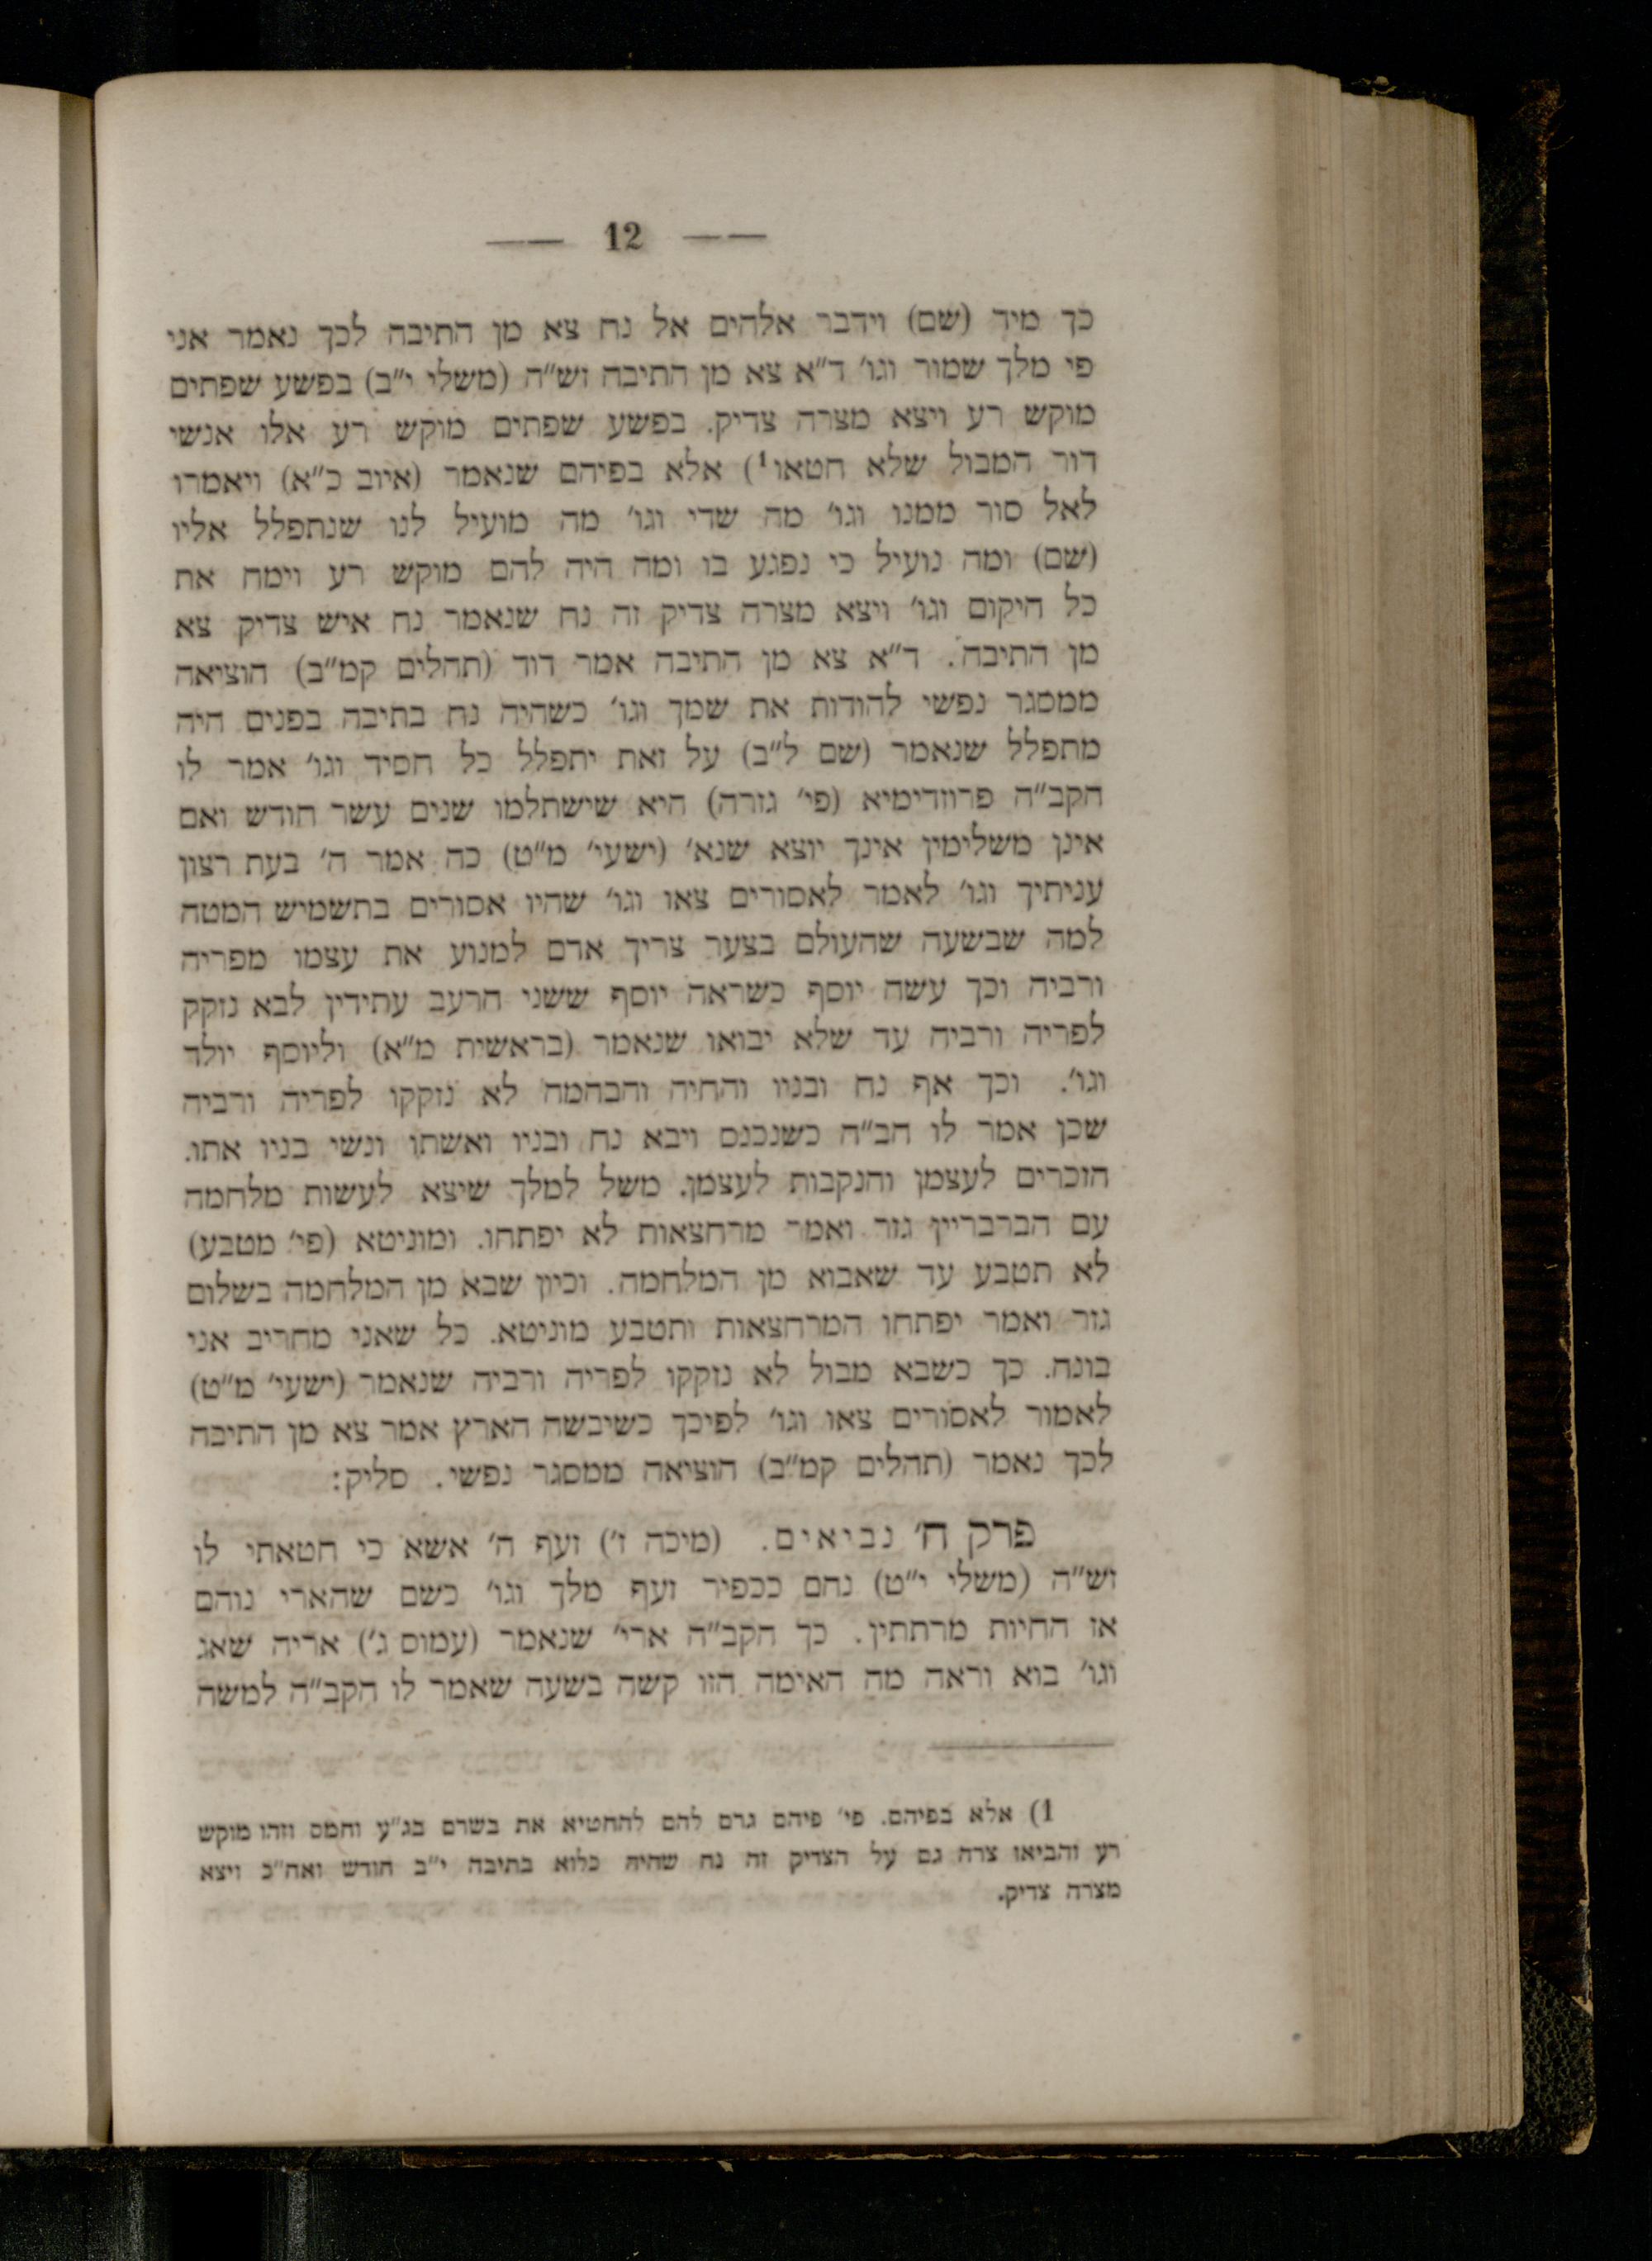 —— 12 ——
כך מיד (שם) וידבר אלהים אל נח צא מן התיבה לכך נאמר אני
פי מלך שמור וגו׳ ד״א צא מן התיבה זש״ה (משלי י״ב) בפשע שפתים
מוקש רע ויצא מצרה צדיק. בפשע שפתים מוקש רע אלו אנשי
דור המבול שלא חטאו¹) אלא בפיהם שנאמר (איוב כ״א) ויאמרו
לאל סור ממנו וגו׳ מה שדי וגו׳ מה מועיל לנו שנתפלל אליו
(שם) ומה נועיל כי נפגע בו ומה היה להם מוקש רע וימח את
כל היקום וגו׳ ויצא מצרה צדיק זה נח שנאמר נח איש צדיק צא
מן התיבה. ד״א צא מן התיבה אמר דוד (תהלים קמ״ב) הוציאה
ממסגר נפשי להודות את שמך וגו׳ כשהיה נח בתיבה בפנים היה
מתפלל שנאמר (שם ל״ב) על זאת יתפלל כל חסיד וגו׳ אמר לו
הקב״ה פרוזדימיא (פי׳ גזרה) היא שישתלמו שנים עשר חודש ואם
אינן משלימין אינך יוצא שנא׳ (ישעי׳ מ״ט) כה אמר ה׳ בעת רצון
עניתיך וגו׳ לאמר לאסורים צאו וגו׳ שהיו אסורים בתשמיש המטה
למה שבשעה שהעולם בצער צריך אדם למנוע את עצמו מפריה
ורביה וכך עשה יוסף כשראה יוסף ששני הרעב עתידין לבא נזקק
לפריה ורביה עד שלא יבואו שנאמר (בראשית מ״א) וליוסף יולד
וגו׳. וכך אף נח ובניו והחיה והבהמה לא נזקקו לפריה ורביה
שכן אמר לו הב״ה כשנכנס ויבא נח ובניו ואשתו ונשי בניו אתו.
הזכרים לעצמן והנקבות לעצמן. משל למלך שיצא לעשות מלחמה
עם הברבריין גזר ואמר מרחצאות לא יפתחו. ומוניטא (פי׳ מטבע)
לא תטבע עד שאבוא מן המלחמה. וכיון שבא מן המלחמה בשלום
גזר ואמר יפתחו המרחצאות ותטבע מוניטא. כל שאני מחריב אני
בונה. כך כשבא מבול לא נזקקו לפריה ורביה שנאמר (ישעי׳ מ״ט)
לאמור לאסורים צאו וגו׳ לפיכך כשיבשה הארץ אמר צא מן התיבה
לכך נאמר (תהלים קמ״ב) הוציאה ממסגר נפשי. סליק:
פרק ח׳ נביאים. (מיכה ז׳) זעף ה׳ אשא כי חטאתי לו
זש״ה (משלי י״ט) נהם ככפיר זעף מלך וגו׳ כשם שהארי נוהם
אז החיות מרתתין. כך הקב״ה ארי׳ שנאמר (עמוס ג׳) אריה שאג
וגו׳ בוא וראה מה האימה הזו קשה בשעה שאמר לו הקב״ה למשה
1) אלא בפיהם. פי׳ פיהם גרם להם להחטיא את בשרם בג״ע וחמס וזהו מוקש
רע והביאו צרה גם על הצדיק זה נח שהיה כלוא בתיבה י״ב חודש ואח״כ ויצא
מצרה צדיק.